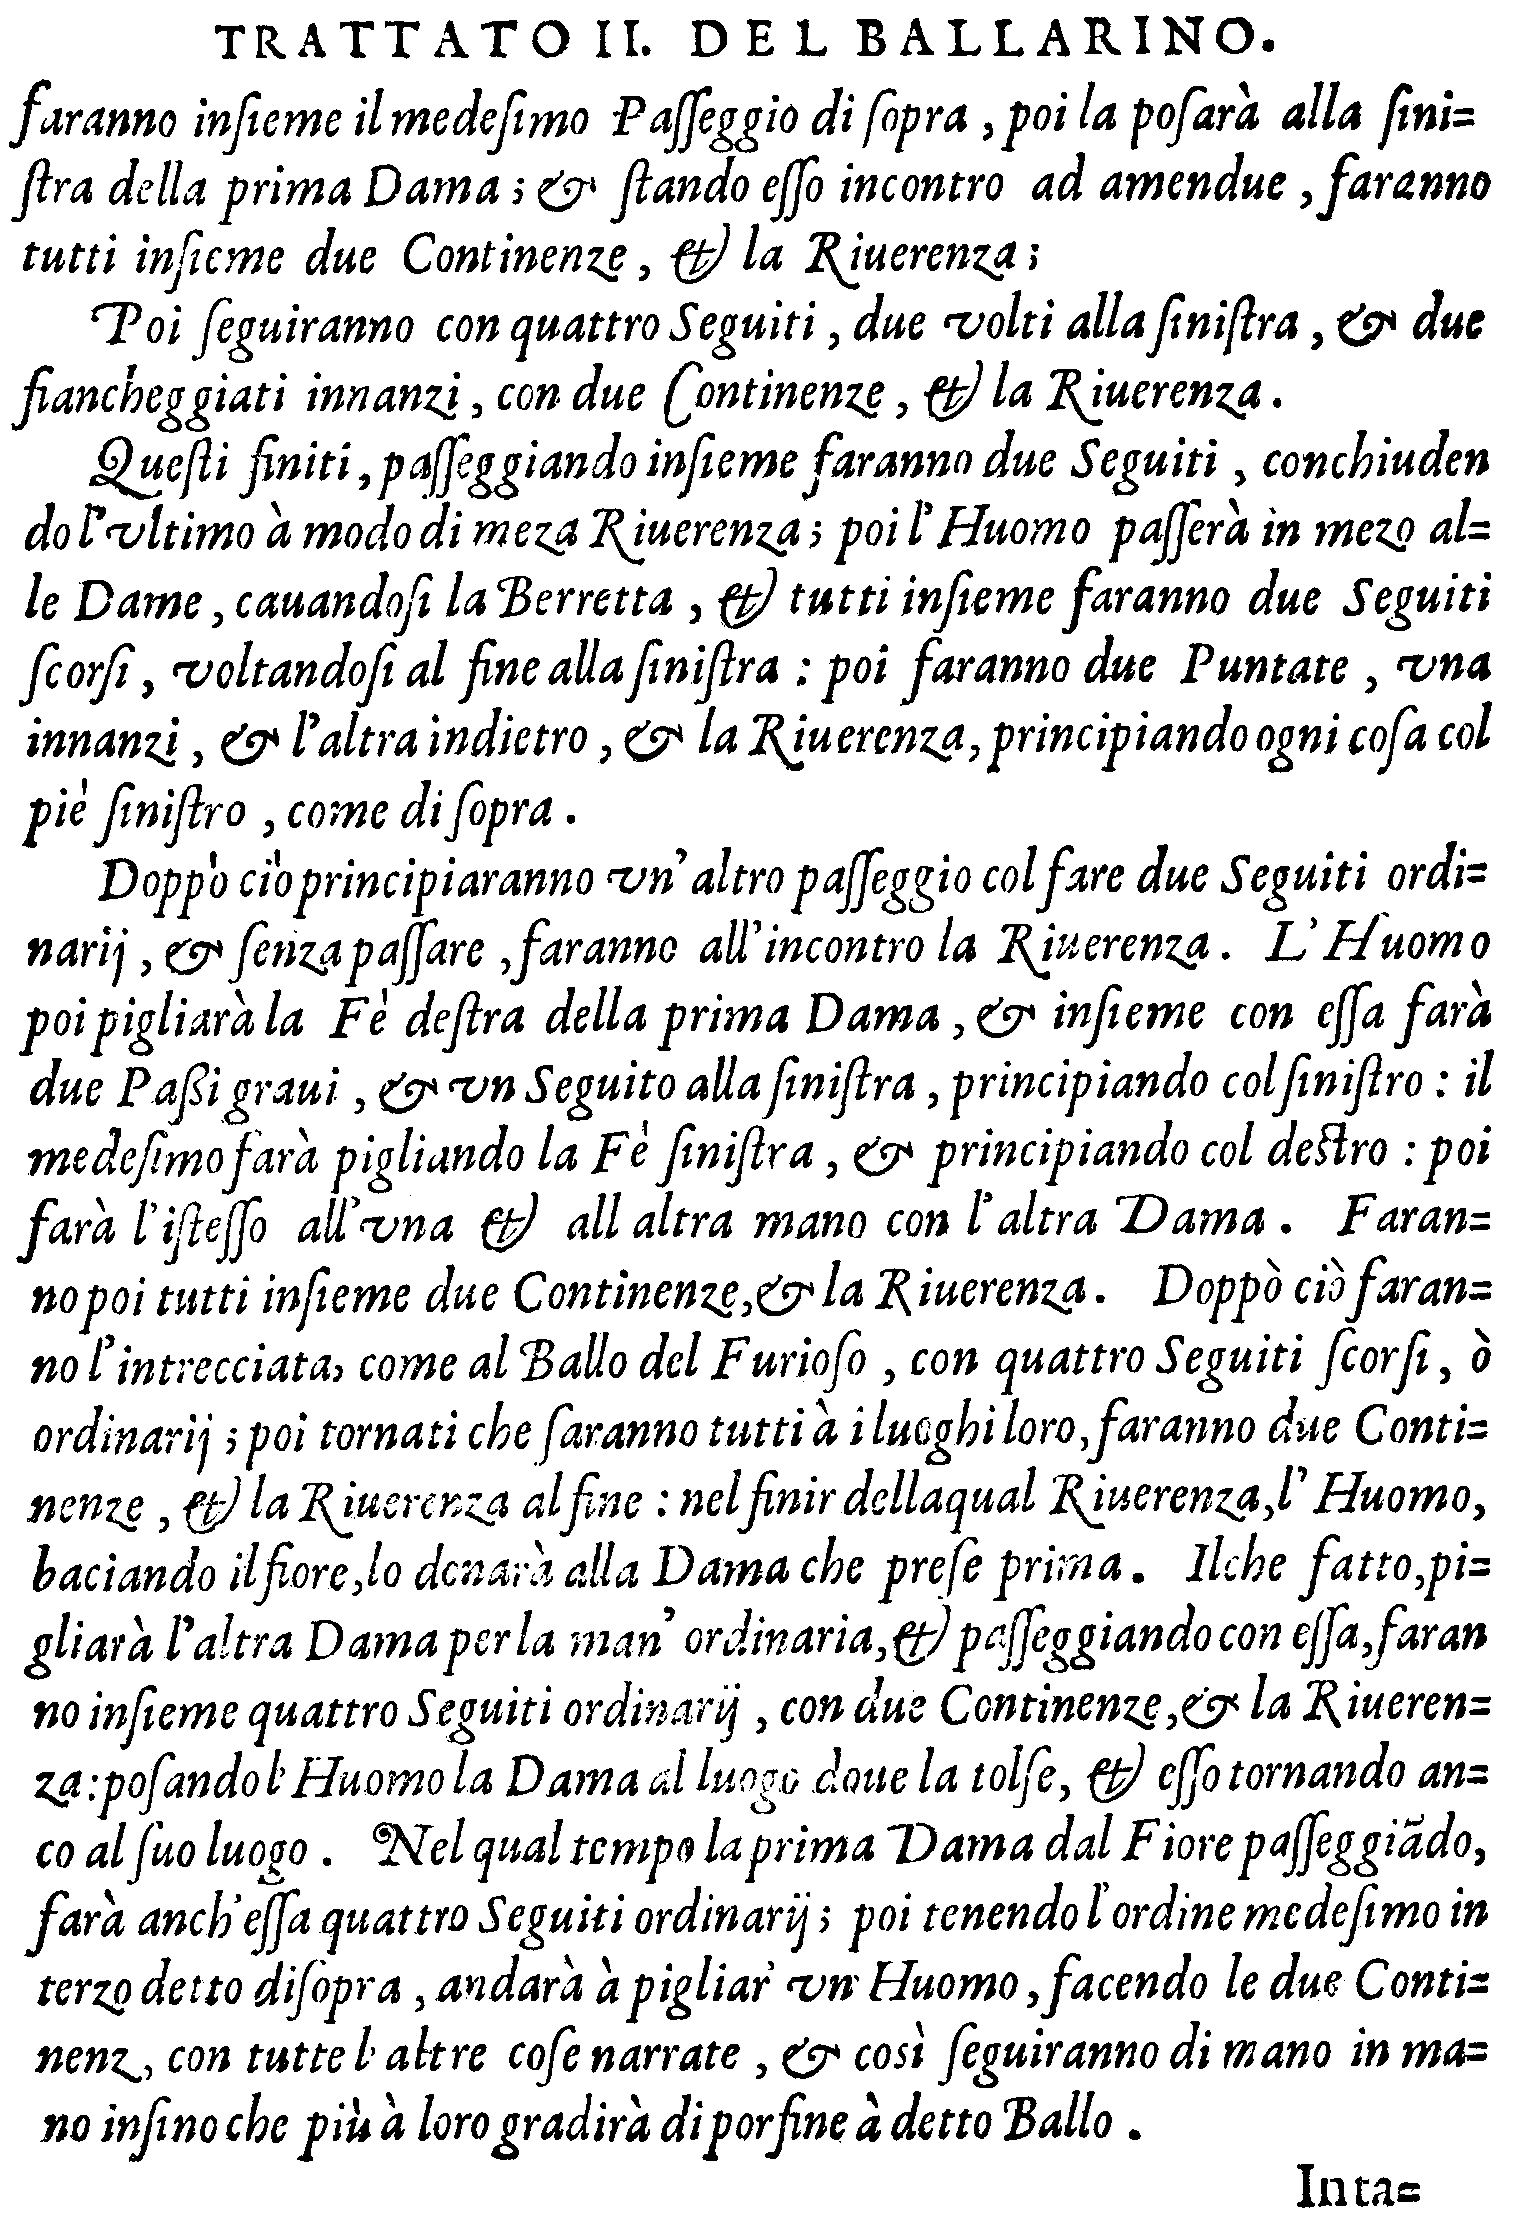 TRATTATO II. DEL BALLARINO.
faranno inſieme il medeſimo Paſſeggio di ſopra, poi la poſarà alla ſini=
ſtra della prima Dama; & ſtando eſſo incontro ad amendue, faranno
tutti inſieme due Continenze, & la Riuerenza;
Poi ſeguiranno con quattro Seguiti, due volti alla ſiniſtra, & due
fiancheggiati innanzi, con due Continenze, & la Riuerenza.
Queſti finiti, paſſeggiando inſieme faranno due Seguiti, conchiuden
do l'vltimo à modo di meza Riuerenza; poi l'Huomo paſſerà in mezo al=
le Dame, cauandoſi la Berretta, & tutti inſieme faranno due Seguiti
ſcorſi, voltandoſi al fine alla ſiniſtra: poi faranno due Puntate, vna
innanzi, & l'altra indietro, & la Riuerenza, principiando ogni coſa col
piè ſiniſtro, come di ſopra.
Doppò ciò principiaranno vn'altro paſſeggio col fare due Seguiti ordi=
narij, & ſenza paſſare, faranno all'incontro la Riuerenza. L'Huomo
poi pigliarà la Fè deſtra della prima Dama, & inſieme con eſſa farà
due Paßi graui, & vn Seguito alla ſiniſtra, principiando col ſiniſtro: il
medeſimo farà pigliando la Fè ſiniſtra, & principiando col deſtro: poi
farà l'iſteſſo all'vna & all altra mano con l'altra Dama. Faran=
no poi tutti inſieme due Continenze, & la Riuerenza. Doppò ciò faran=
no l'intrecciata, come al Ballo del Furioſo, con quattro Seguiti ſcorſi, ò
ordinarij; poi tornati che ſaranno tutti à i luoghi loro, faranno due Conti=
nenze, & la Riuerenza al fine: nel finir della qual Riuerenza, l'Huomo,
baciando il fiore, lo donarà alla Dama che preſe prima. Ilche fatto, pi=
gliarà l'altra Dama per la man' ordinaria, & paſſeggiando con eſſa, faran
no inſieme quattro Seguiti ordinarij, con due Continenze, & la Riueren=
za: poſando l'Huomo la Dama al luogo doue la tolſe, & eſſo tornando an=
co al ſuo luogo. Nel qual tempo la prima Dama dal Fiore paſſeggiãdo,
farà anch'eſſa quattro Seguiti ordinarij; poi tenendo l'ordine medeſimo in
terzo detto diſopra, andarà à pigliar' vn' Huomo, facendo le due Conti=
nenz, con tutte l'altre coſe narrate, & così ſeguiranno di mano in ma=
no inſino che più à loro gradirà di por fine à detto Ballo.
Inta=